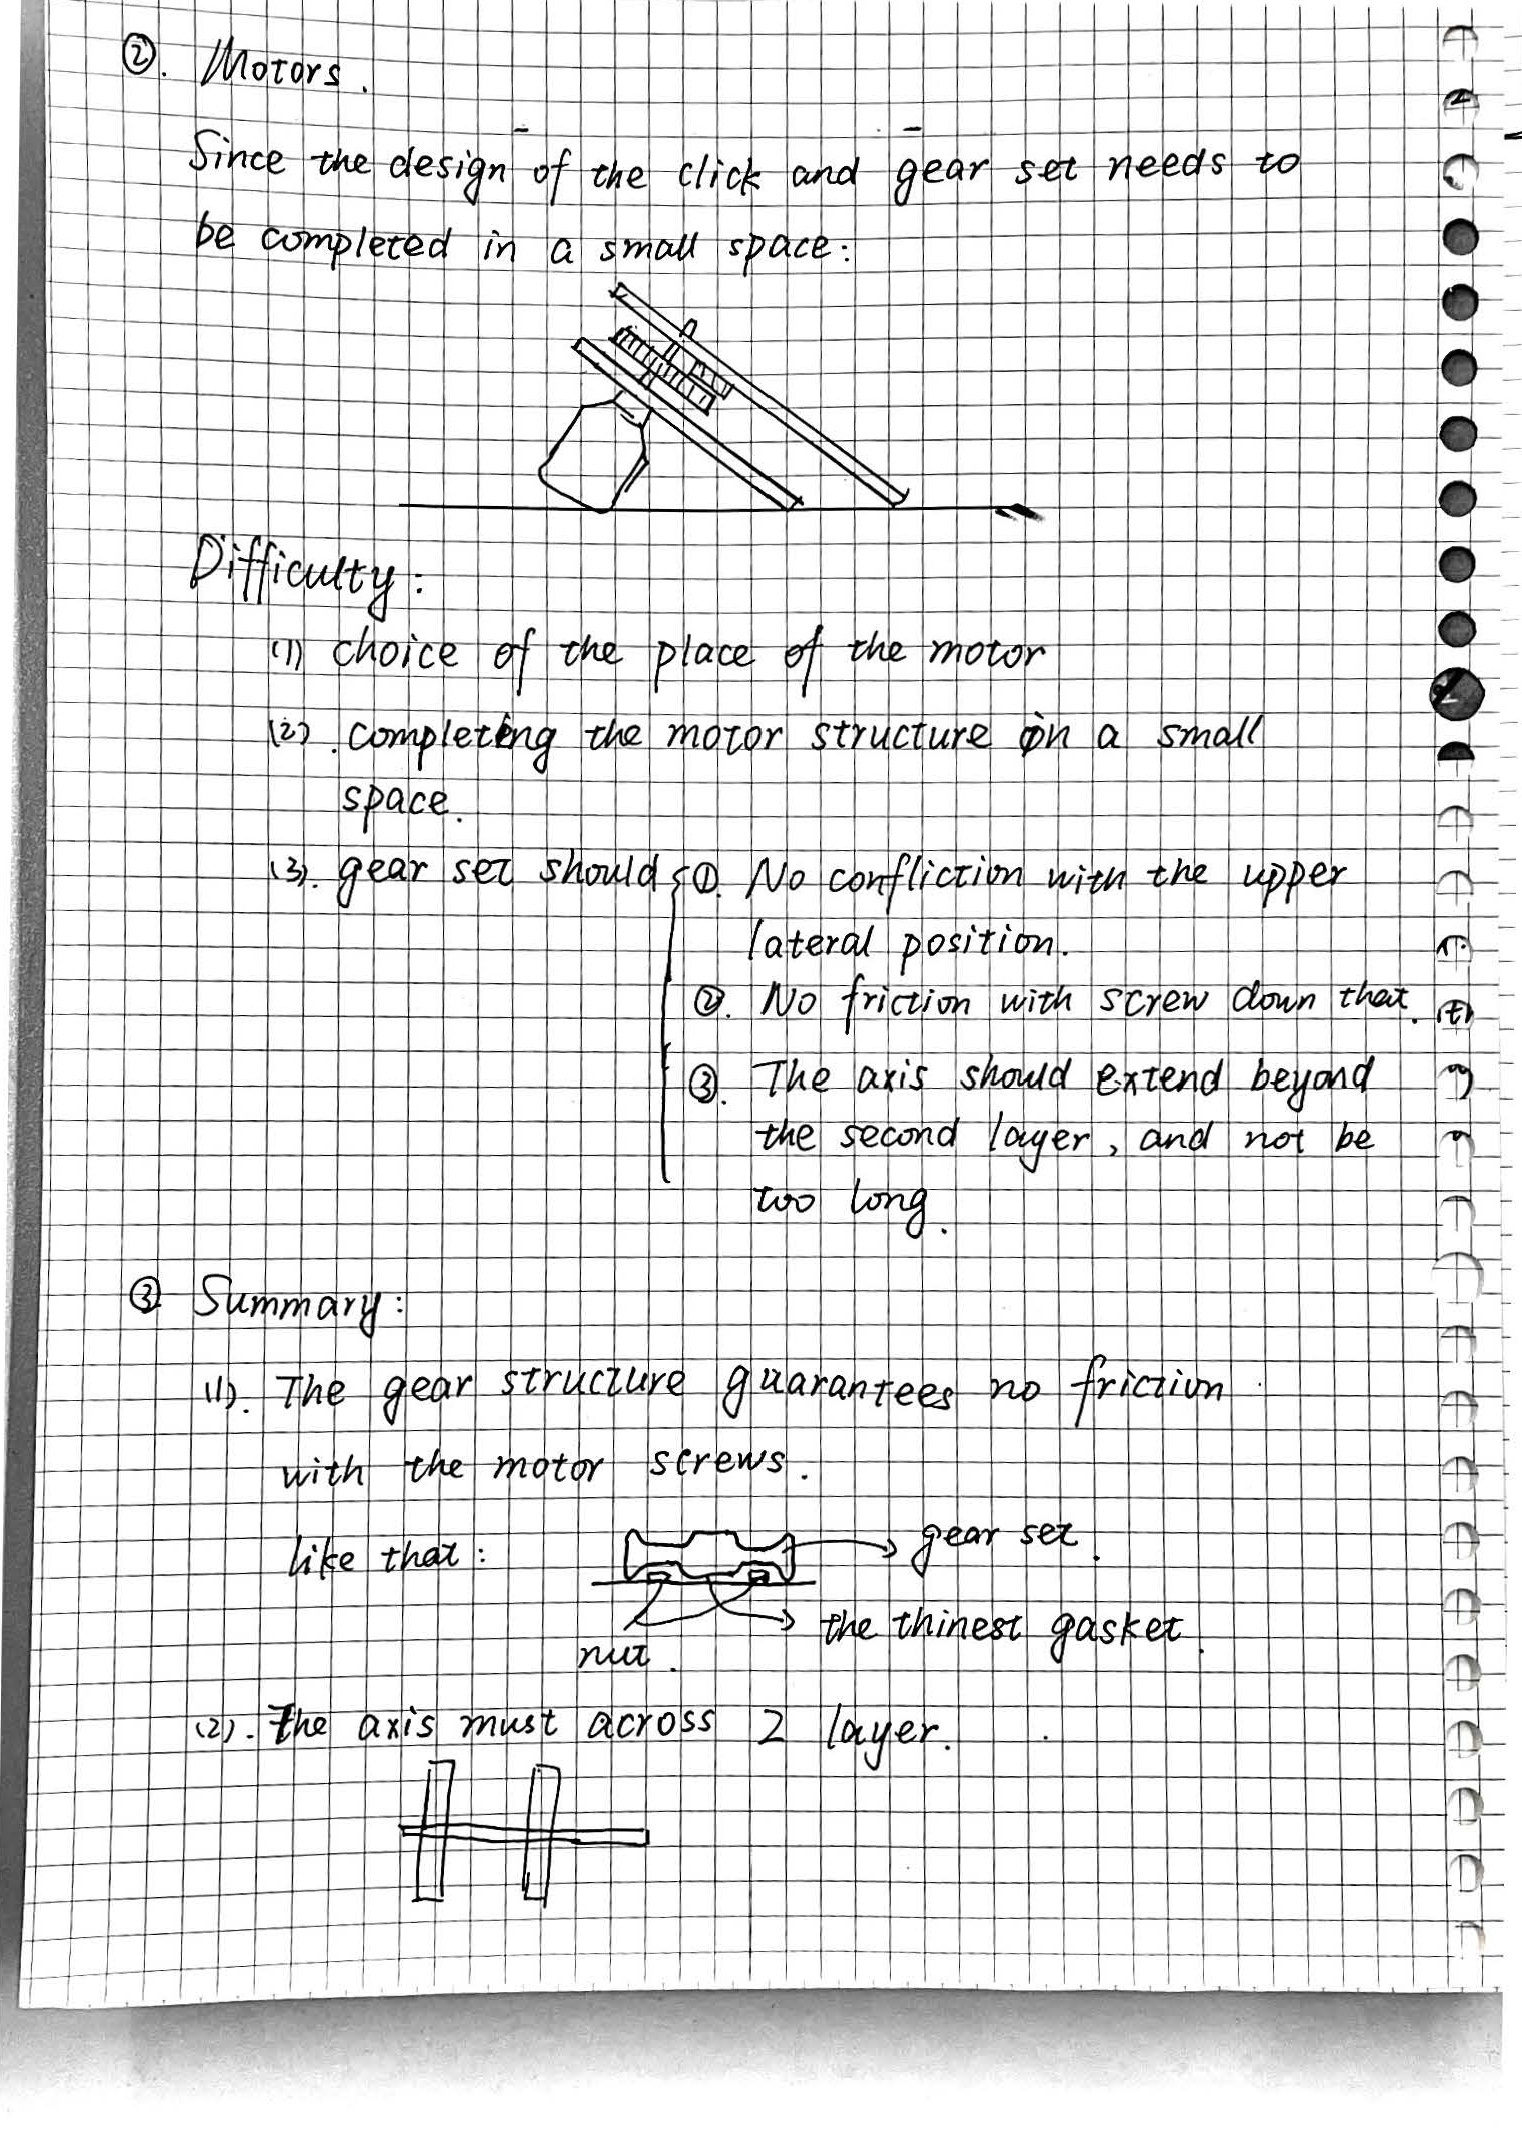 ②. Motors.
Since the design of the click and gear set needs to
be completed in a small space:
Difficulty:
(1) choice of the place of the motor
(2). completing the motor structure in a small
space.
(3). gear set should ①. No confliction with the upper
lateral position.
②. No friction with screw down that.
③. The axis should extend beyond
the second layer, and not be
too long.
③ Summary:
(1). The gear structure guarantees no friction
with the motor screws.
like that: gear set.
the thinest gasket.
nut.
(2). The axis must across 2 layer.